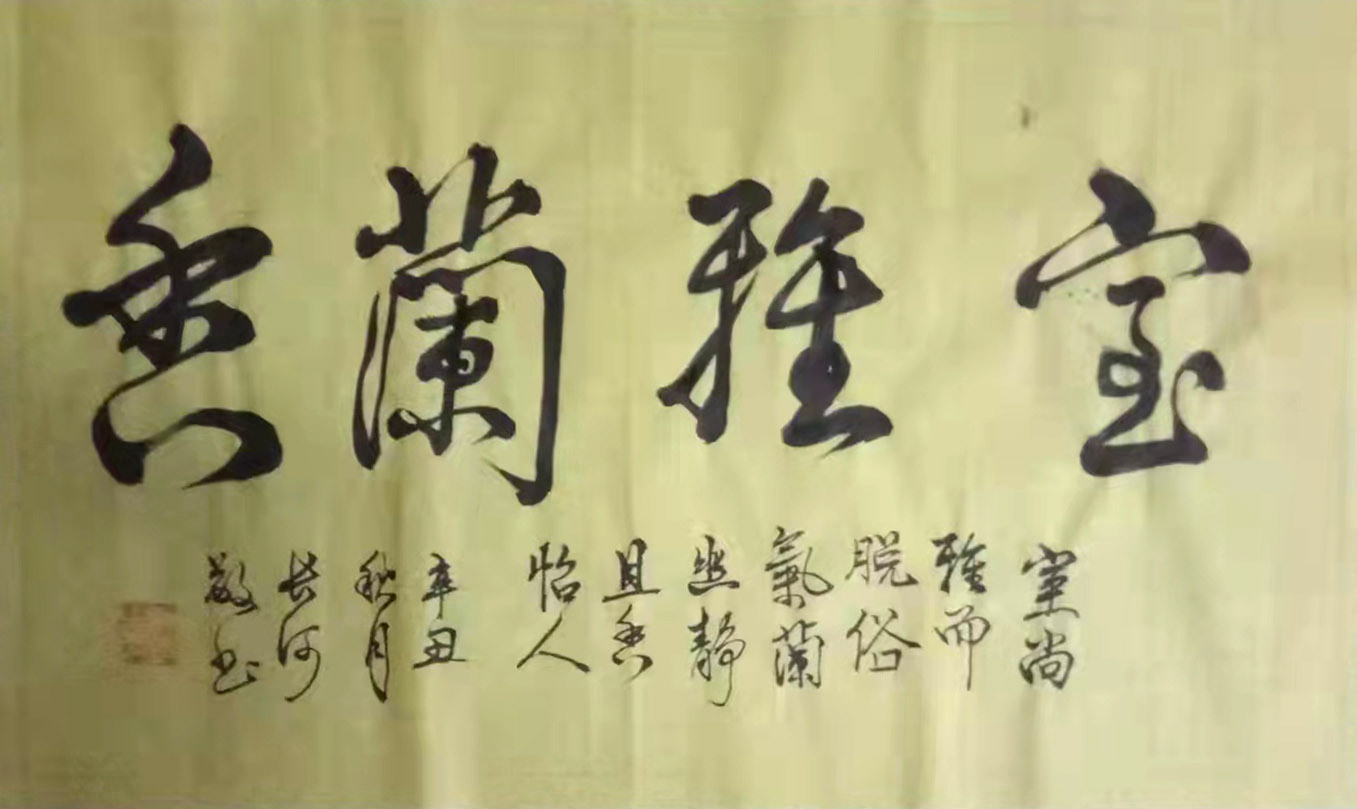 室雅蘭香
室尚
雅而
脱俗
氣蘭
幽靜
且香
怡人
辛丑
秋月
长河
敬书